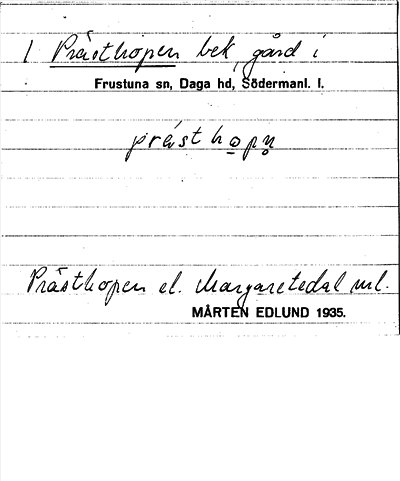 1 Prästhopen bek, gård i
Frustuna sn, Daga hd, Södermanl. l.
prästhopn
Prästhopen el. Margaretedal ml.
MÅRTEN EDLUND 1935.